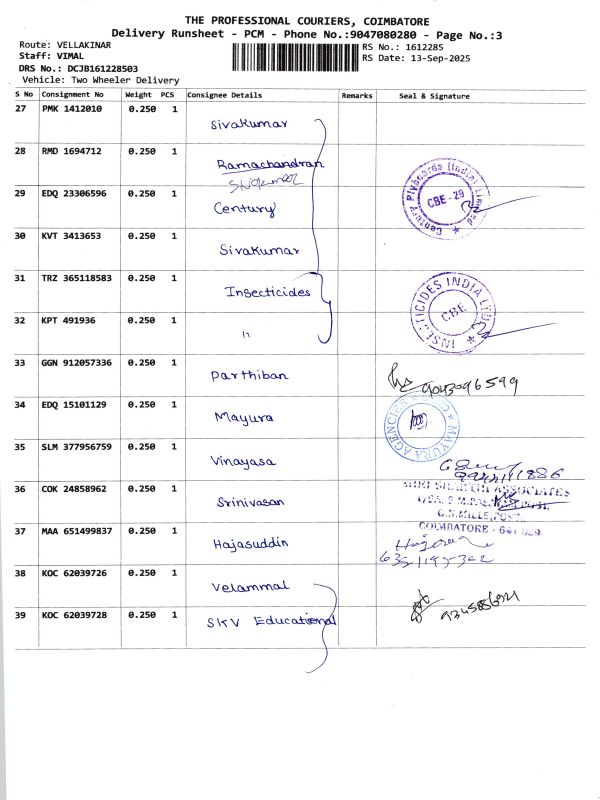 THE PROFESSIONAL COURIERS, COIMBATORE
Delivery Runsheet - PCM - Phone No.:9047080280 - Page No.:3
Route: VELLAKINAR
RS No.: 1612285
Staff: VIMAL
RS Date: 13-Sep-2025
DRS No.: DCJB161228503
Vehicle: Two Wheeler Delivery
S No Consignment No Weight PCS Consignee Details Remarks Seal & Signature
27 PMK 1412010 0.250 1 Sivakumar
28 RMD 1694712 0.250 1 Ramachandran
Sivakumar
29 EDQ 23306596 0.250 1 Century
Century Plyboards (India) Limited
CBE - 29
30 KVT 3413653 0.250 1 Sivakumar
31 TRZ 365118583 0.250 1 Insecticides
INSECTICIDES INDIA LTD.
CBE
32 KPT 491936 0.250 1 "
33 GGN 912057336 0.250 1 Parthiban
9043096599
34 EDQ 15101129 0.250 1 Mayura
MAYURA AGENCIES
35 SLM 377956759 0.250 1 Vinayasa
36 COK 24858962 0.250 1 Srinivasan
ASSOCIATES
G.N.MILLS POST,
COIMBATORE - 641 029
37 MAA 651499837 0.250 1 Hajasuddin
38 KOC 62039726 0.250 1 Velammal
39 KOC 62039728 0.250 1 SKV Educational